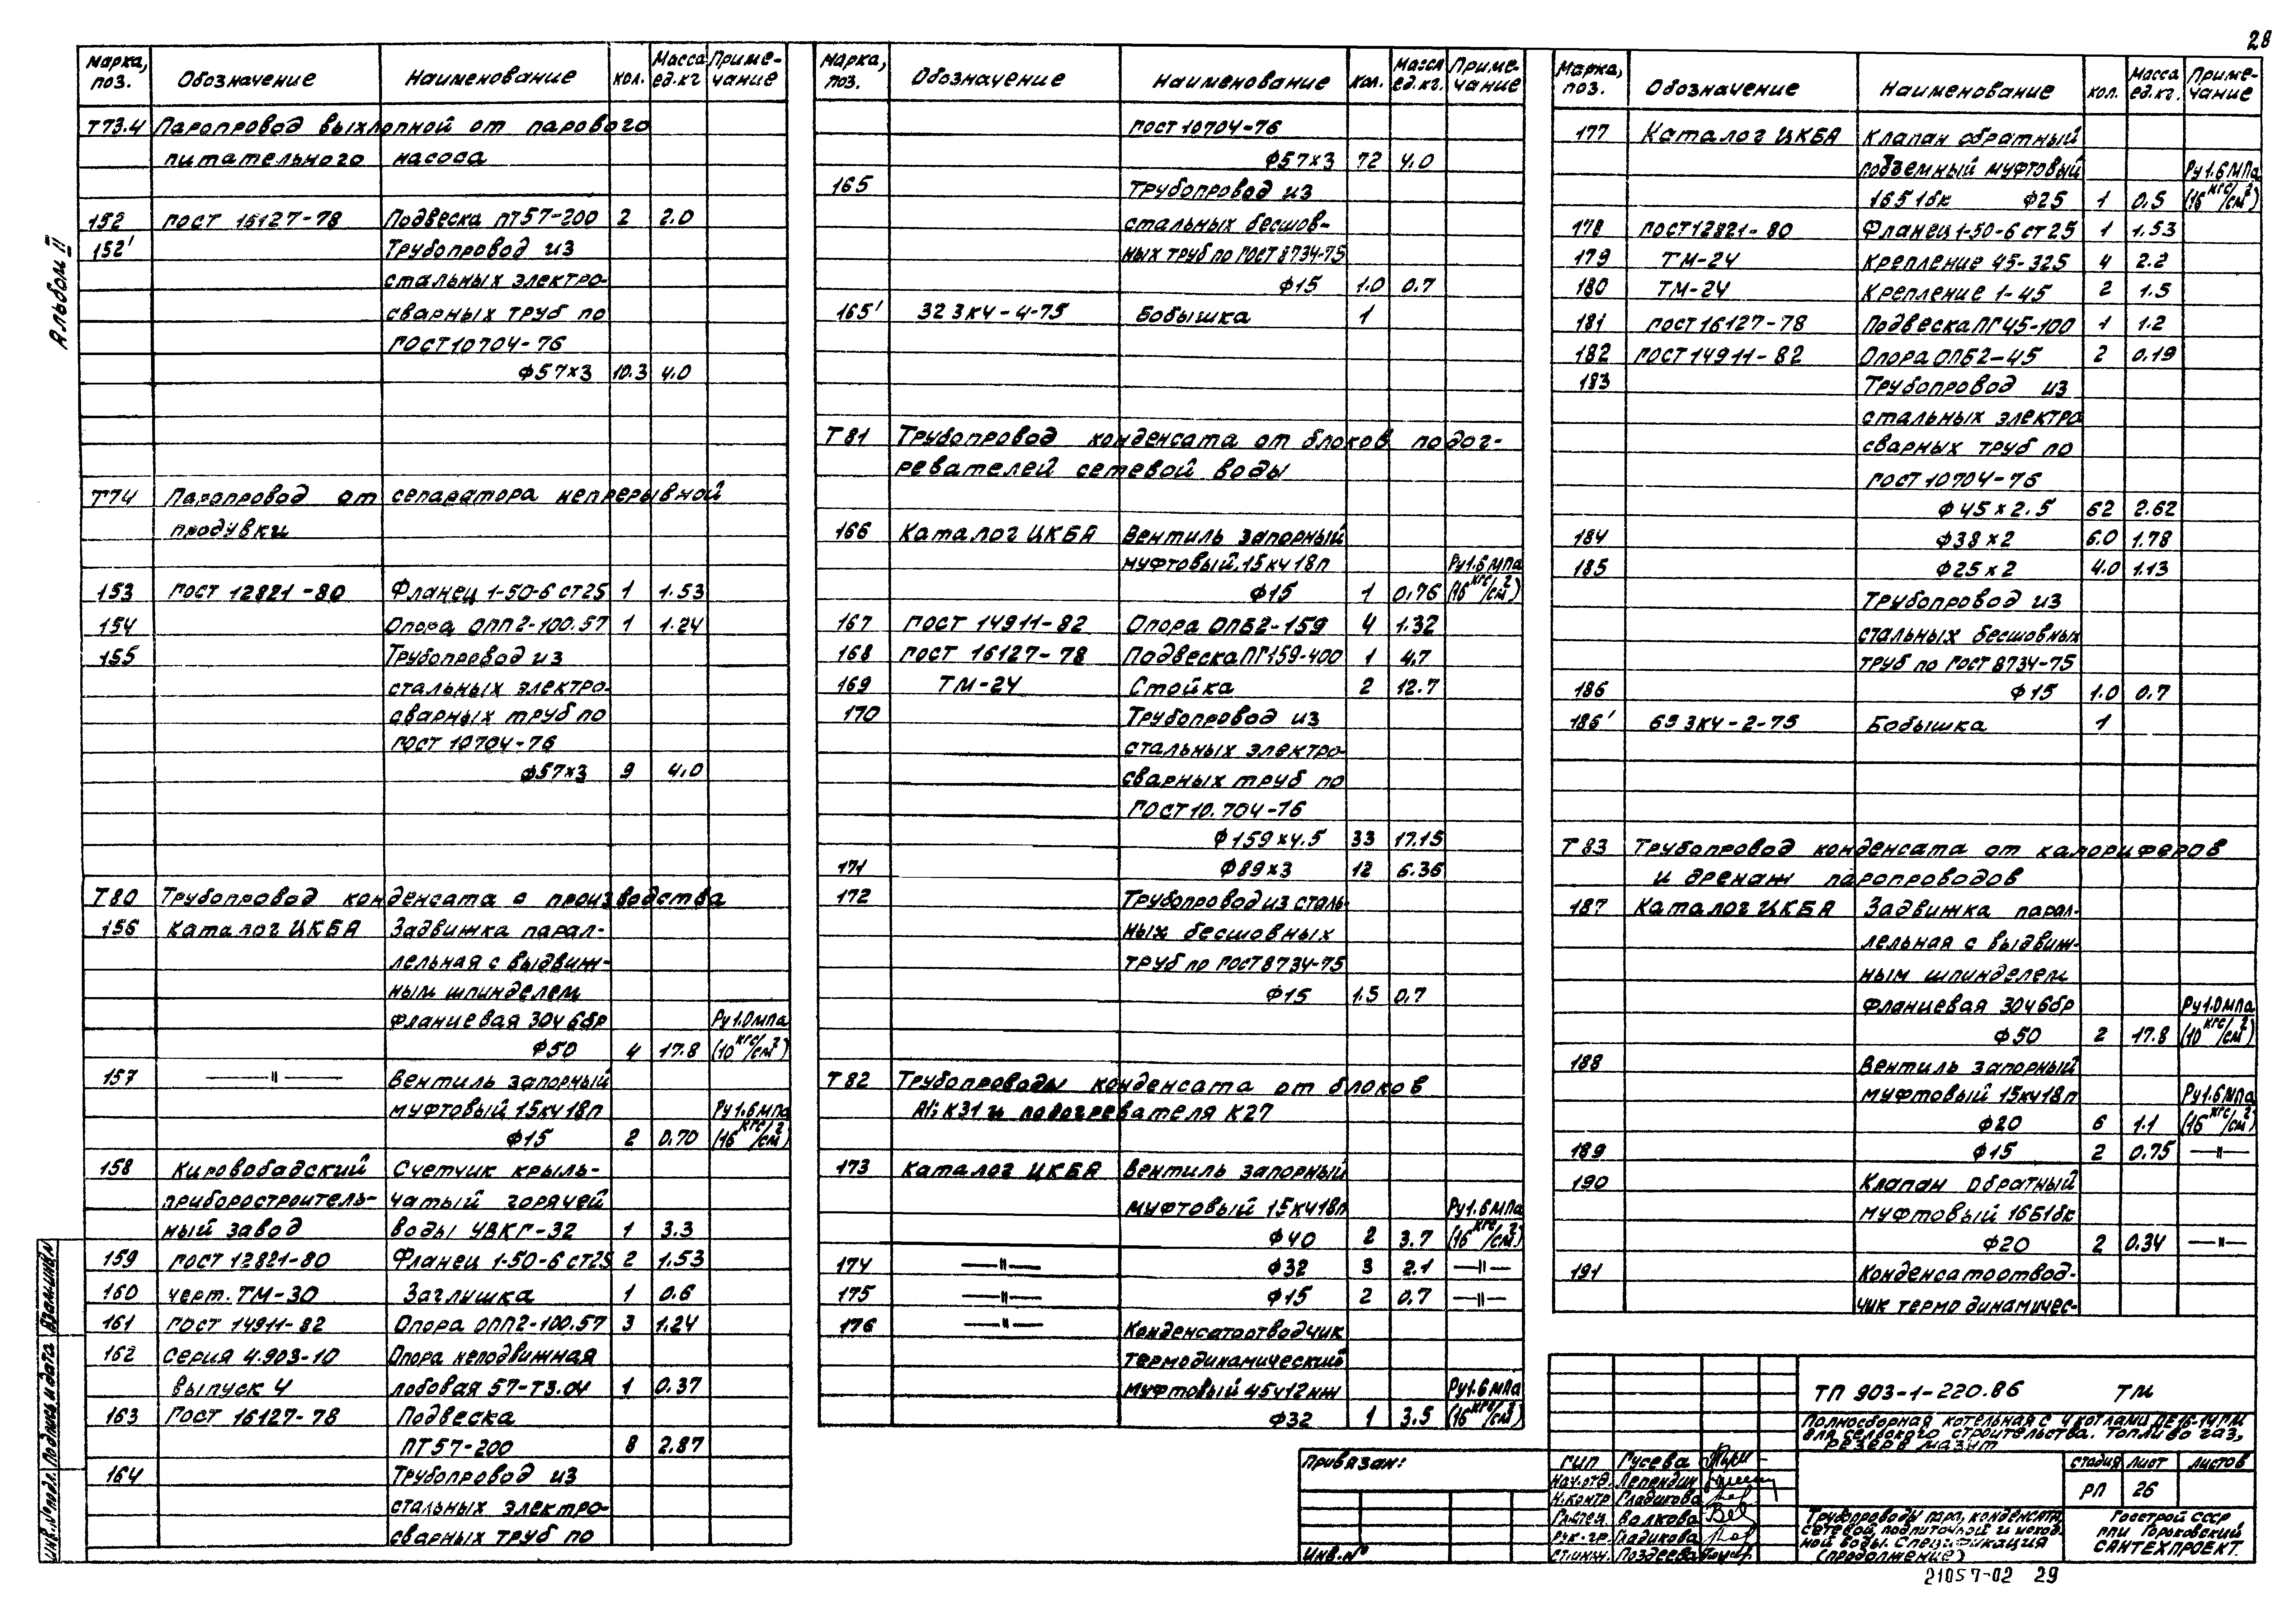 28
Альбом II
Марка, поз. Обозначение Наименование кол. Масса ед.кг Приме-чание
Т73.4 Паропровод выхлопной от парового
питательного насоса
152 ГОСТ 16127-78 Подвеска ПТ57-200 2 2.0
152' Трубопровод из
стальных электро-
сварных труб по
ГОСТ10704-76
ф57×3 10.3 4.0
Т74 Паропровод от сепаратора непрерывной
продувки
153 ГОСТ 12821-80 Фланец 1-50-6 ст25 1 1.53
154 Опора ОПП2-100.57 1 1.24
155 Трубопровод из
стальных электро-
сварных труб по
ГОСТ 10704-76
ф57×3 9 4.0
Т80 Трубопровод конденсата с производства
156 Каталог ЦКБА Задвижка парал-
лельная с выдвиж-
ным шпинделем
фланцевая 30ч6бр Ру1.0мпа
ф50 4 17.8 (10 кгс/см²)
157 —"— Вентиль запорный
муфтовый 15кч18п Ру1.6мпа
ф15 2 0.70 (16 кгс/см²)
158 Кировобадский Счетчик крыль-
приборостроитель- чатый горячей
ный завод воды УВКГ-32 1 3.3
159 ГОСТ 12821-80 Фланец 1-50-6 ст25 2 1.53
160 черт. ТМ-30 Заглушка 1 0.6
161 ГОСТ 14911-82 Опора ОПП2-100.57 3 1.24
162 Серия 4.903-10 Опора неподвижная
выпуск 4 лобовая 57-Т3.04 1 0.37
163 ГОСТ 16127-78 Подвеска
ПТ57-200 8 2.87
164 Трубопровод из
стальных электро-
сварных труб по
Марка, поз. Обозначение Наименование кол. Масса ед.кг. Приме-чание
ГОСТ10704-76
ф57×3 72 4.0
165 Трубопровод из
стальных бесшов-
ных труб по ГОСТ 8734-75
ф15 1.0 0.7
165' 32 ЗК4-4-75 Бобышка 1
Т81 Трубопровод конденсата от блоков подог-
ревателей сетевой воды
166 Каталог ЦКБА Вентиль запорный
муфтовый 15кч18п Ру1.6мпа
ф15 1 0.76 (16 кгс/см²)
167 ГОСТ 14911-82 Опора ОПБ2-159 4 1.32
168 ГОСТ 16127-78 Подвеска ПГ159-400 1 4.7
169 ТМ-24 Стойка 2 12.7
170 Трубопровод из
стальных электро-
сварных труб по
ГОСТ10.704-76
ф159×4.5 33 17.15
171 ф89×3 12 6.36
172 Трубопровод из сталь-
ных бесшовных
труб по ГОСТ8734-75
ф15 1.5 0.7
Т82 Трубопроводы конденсата от блоков
А1; К31 и подогревателя К27
173 Каталог ЦКБА Вентиль запорный
муфтовый 15кч18п Ру1.6мпа
ф40 2 3.7 (16 кгс/см²)
174 —"— ф32 3 2.1 —"—
175 —"— ф15 2 0.7 —"—
176 —"— Конденсатоотводчик
термодинамический
муфтовый 45ч12нж Ру1.6мпа
ф32 1 3.5 (16 кгс/см²)
Марка, поз. Обозначение Наименование кол. Масса ед.кг. Приме-чание
177 Каталог ЦКБА Клапан обратный
подъемный муфтовый Ру1.6МПа
16б1бк ф25 1 0.5 (16 кгс/см²)
178 ГОСТ12821-80 Фланец 1-50-6 ст25 1 1.53
179 ТМ-24 Крепление 45-325 4 2.2
180 ТМ-24 Крепление 1-45 2 1.5
181 ГОСТ16127-78 Подвеска ПГ45-100 1 1.2
182 ГОСТ14911-82 Опора ОПБ2-45 2 0.19
183 Трубопровод из
стальных электро
сварных труб по
ГОСТ10704-76
ф45×2.5 62 2.62
184 ф38×2 6.0 1.78
185 ф25×2 4.0 1.13
Трубопровод из
стальных бесшовных
труб по ГОСТ 8734-75
186 ф15 1.0 0.7
186' 65 ЗК4-2-75 Бобышка 1
Т83 Трубопровод конденсата от калориферов
и дренаж паропроводов
187 Каталог ЦКБА Задвижка парал-
лельная с выдвиж-
ным шпинделем
фланцевая 30ч6бр Ру1.0мпа
ф50 2 17.8 (10 кгс/см²)
188 Вентиль запорный
муфтовый 15кч18п Ру1.6мпа
ф20 6 1.1 (16 кгс/см²)
189 ф15 2 0.75 —"—
190 Клапан обратный
муфтовый 16Б1бк
ф20 2 0.34 —"—
191 Конденсатоотвод-
чик термодинамичес-
ТП 903-1-220.86 ТМ
Полносборная котельная с 4 котлами ДЕ16-14ГМ
для сельского строительства. Топливо газ,
резерв мазут
Привязан:
Инв.№
ГИП Гусева
Нач.отд. Лепендин
Н.контр Гладикова
Волкова
Рук.гр. Гладикова
Ст.инж. Поздеева
стадия лист листов
РП 26
Трубопроводы пара, конденсата,
сетевой, подпиточной и исход-
ной воды. Спецификация
(продолжение)
Госстрой СССР
ппи Горьковский
САНТЕХПРОЕКТ.
21057-02 29
Инв.№подл. Подпись и дата Взам.инв.№